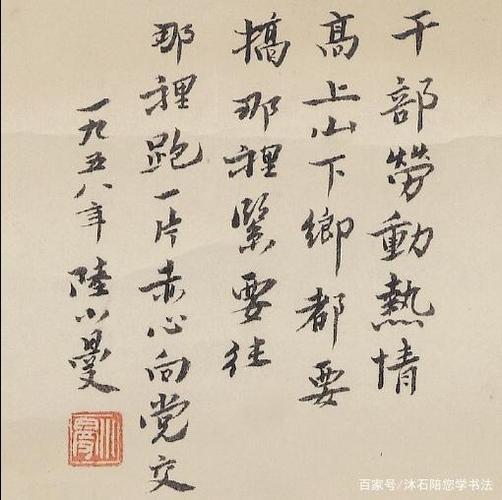 干部勞動熱情
高上山下鄉都要
搞那裡緊要往
那裡跑一片赤心向党交
一九五八年 陸小曼
小曼
百家号/沐石陪您学书法